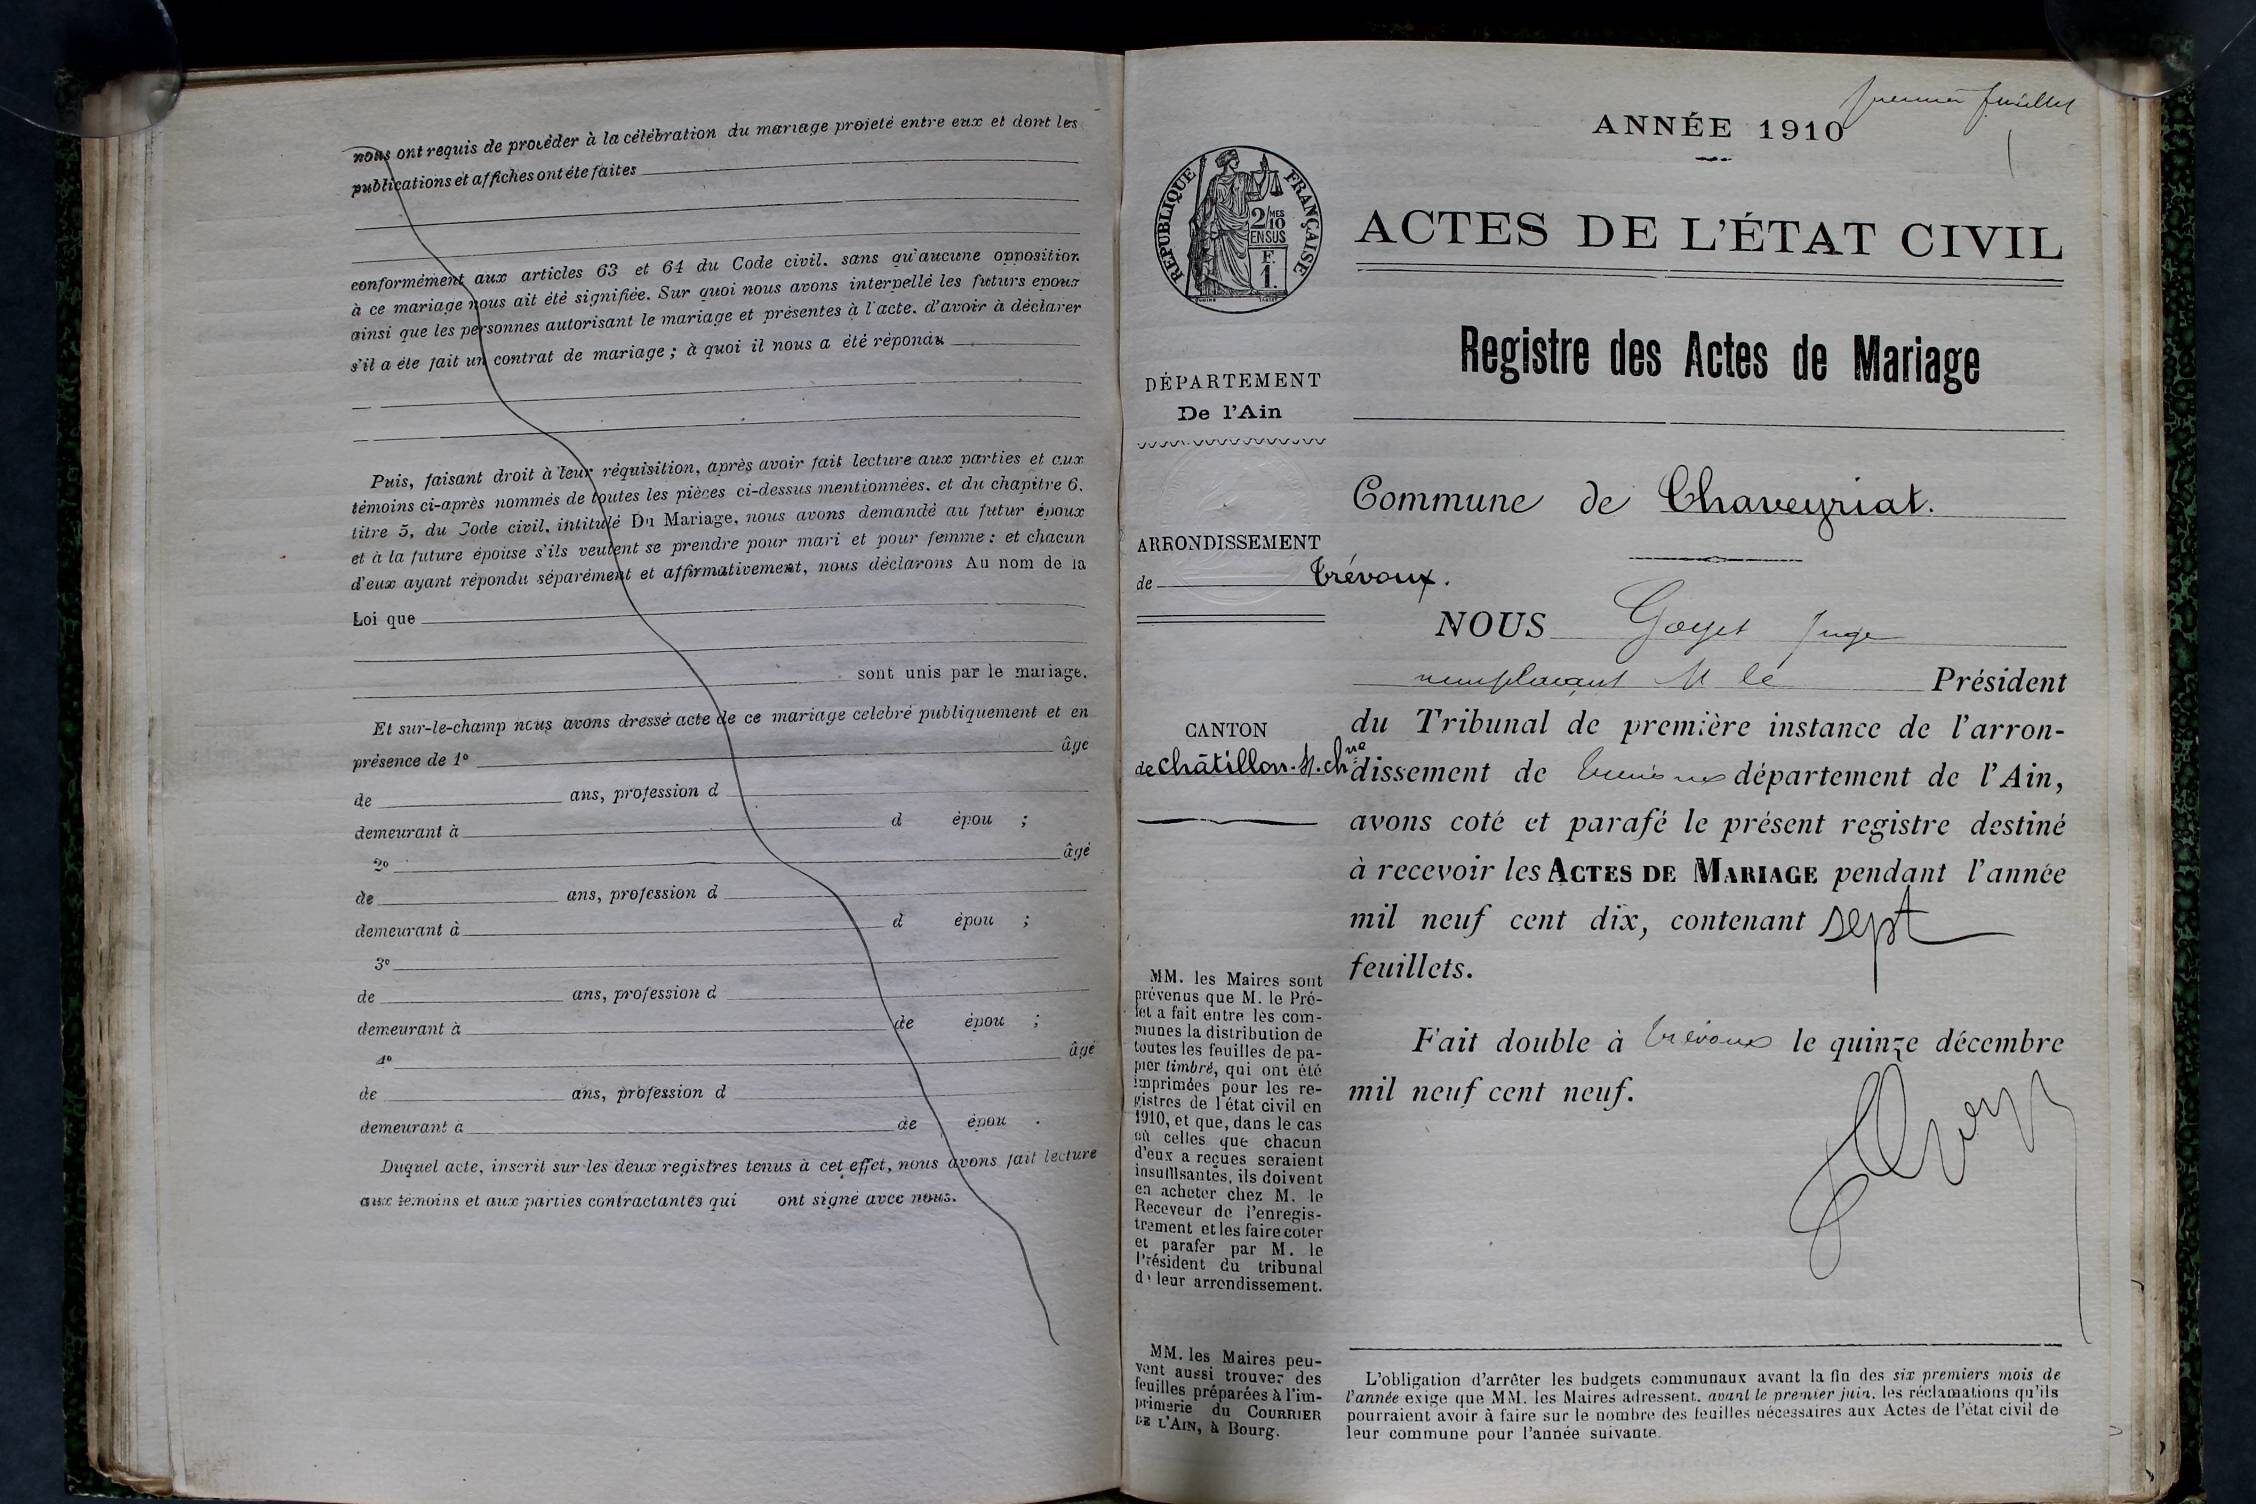 nous ont requis de procéder à la célébration du mariage projeté entre eux et dont les
publications et affiches ont été faites
conformément aux articles 63 et 64 du Code civil. sans qu'aucune opposition
à ce mariage nous ait été signifiée. Sur quoi nous avons interpellé les futurs époux
ainsi que les personnes autorisant le mariage et présentes à l'acte. d'avoir à déclarer
s'il a été fait un contrat de mariage ; à quoi il nous a été répondu
Puis, faisant droit à leur réquisition, après avoir fait lecture aux parties et aux
témoins ci-après nommés de toutes les pièces ci-dessus mentionnées. et du chapitre 6.
titre 5, du Code civil, intitulé Du Mariage, nous avons demandé au futur époux
et à la future épouse s'ils veulent se prendre pour mari et pour femme : et chacun
d'eux ayant répondu séparément et affirmativement, nous déclarons Au nom de la
Loi que
sont unis par le mariage.
Et sur-le-champ nous avons dressé acte de ce mariage célébré publiquement et en
présence de 1° âgé
de ans, profession d
demeurant à d épou ;
2° âgé
de ans, profession d
demeurant à d épou ;
3°
de ans, profession d
demeurant à de épou ;
4° âgé
de ans, profession d
demeurant à de épou .
Duquel acte, inscrit sur les deux registres tenus à cet effet, nous avons fait lecture
aux témoins et aux parties contractantes qui ont signé avec nous.
premier feuillet
ANNÉE 1910
RÉPUBLIQUE FRANÇAISE
2/10 MES
EN SUS
F.
1.
ACTES DE L'ÉTAT CIVIL
Registre des Actes de Mariage
DÉPARTEMENT
De l'Ain
Commune de Chaveyriat.
ARRONDISSEMENT
de Trévoux.
CANTON
de Châtillon-s/-Ch^ne
NOUS Goyet Juge
remplaçant M le Président
du Tribunal de première instance de l'arron-
dissement de Trévoux département de l'Ain,
avons coté et parafé le présent registre destiné
à recevoir les ACTES DE MARIAGE pendant l'année
mil neuf cent dix, contenant sept
feuillets.
Fait double à Trévoux le quinze décembre
mil neuf cent neuf.
MM. les Maires sont
prévenus que M. le Pré-
fet a fait entre les com-
munes la distribution de
toutes les feuilles de pa-
pier timbré, qui ont été
imprimées pour les re-
gistres de l'état civil en
1910, et que, dans le cas
où celles que chacun
d'eux a reçues seraient
insuffisantes, ils doivent
en acheter chez M. le
Receveur de l'enregis-
trement et les faire coter
et parafer par M. le
Président du tribunal
de leur arrondissement.
MM. les Maires peu-
vent aussi trouver des
feuilles préparées à l'im-
primerie du COURRIER
DE L'AIN, à Bourg.
L'obligation d'arrêter les budgets communaux avant la fin des six premiers mois de
l'année exige que MM. les Maires adressent. avant le premier juin. les réclamations qu'ils
pourraient avoir à faire sur le nombre des feuilles nécessaires aux Actes de l'état civil de
leur commune pour l'année suivante.